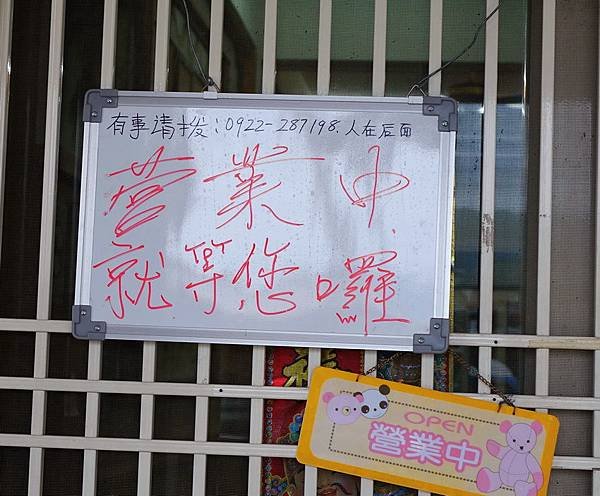 有事請撥：0922-287198.人在后面
營業中
就等您囉
OPEN
營業中